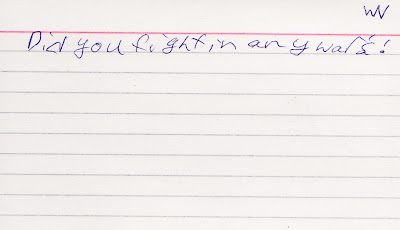 WV
Did you fight, in any wars!